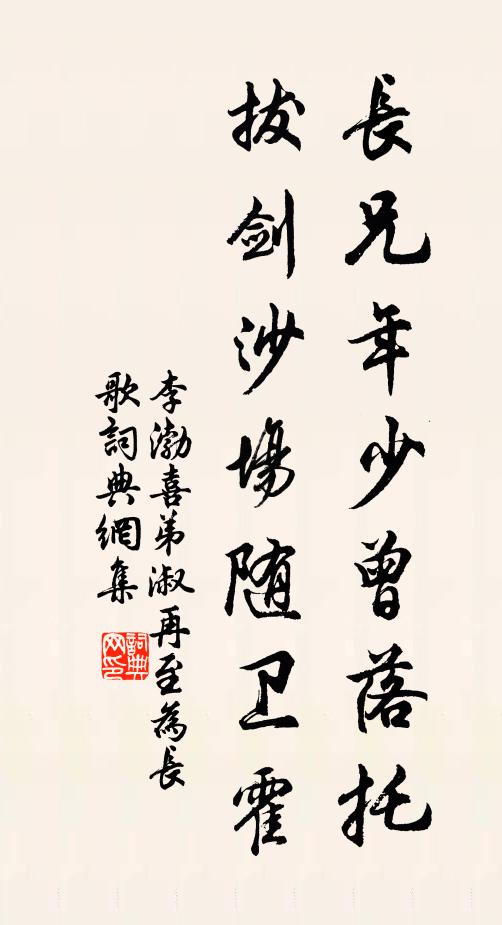 長兄年少曾落托
拔劍沙場随卫霍
李渤喜弟淑再至為長
歌詞典網集
詞典网印